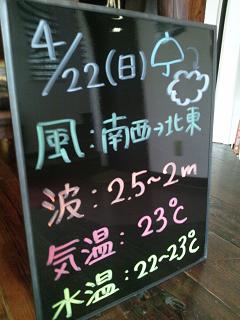 4/22(日)
風:南西→北東
波:2.5~2m
気温:23℃
水温:22~23℃